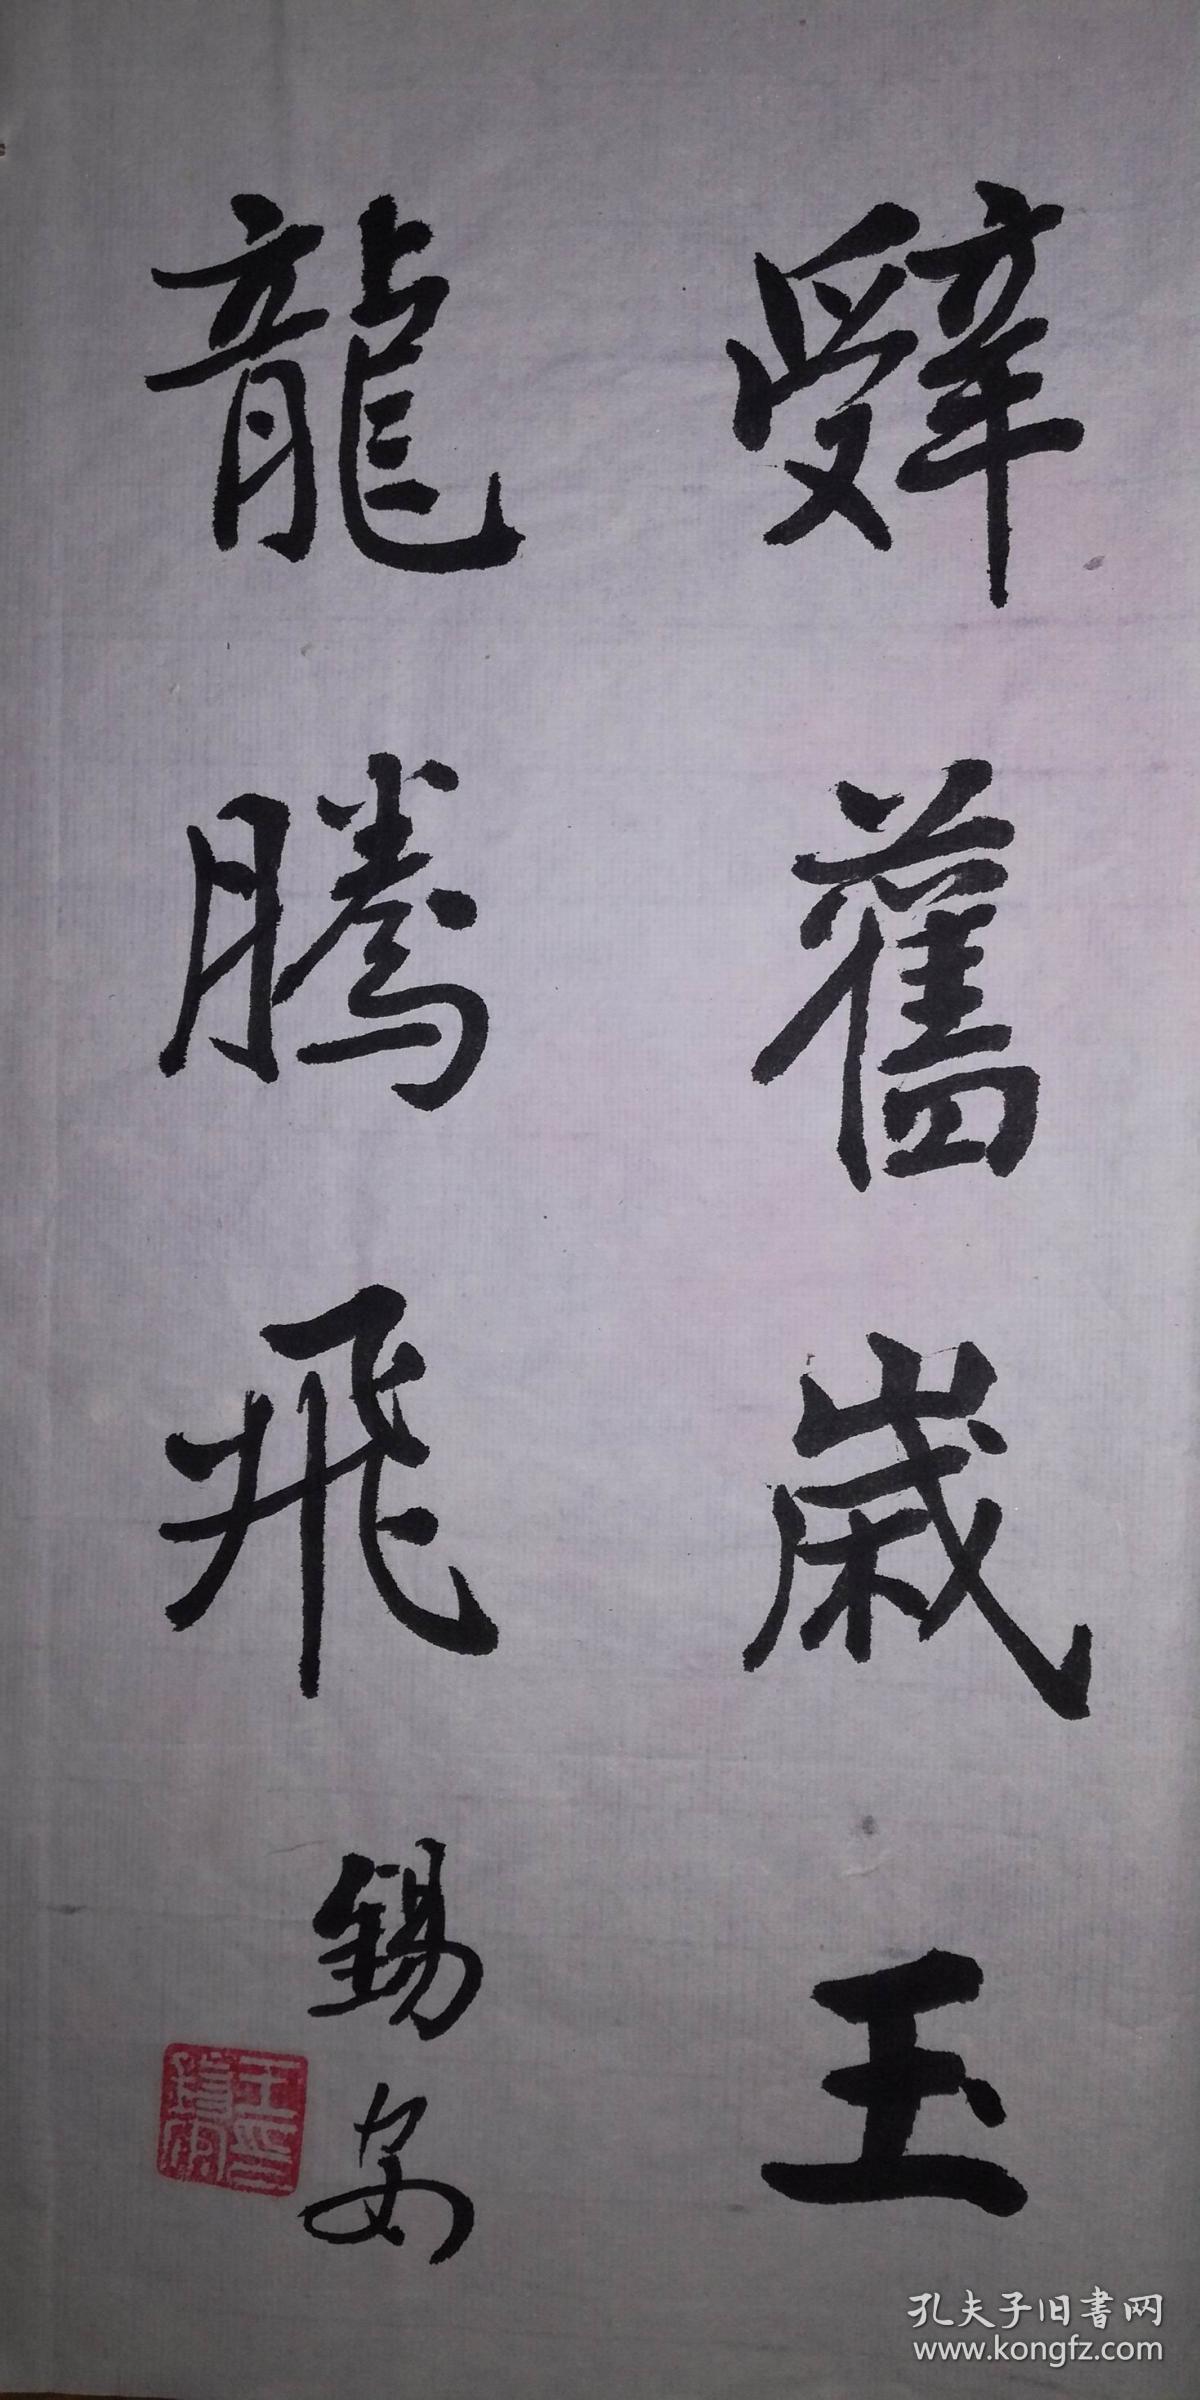 辤舊歲玉
龍騰飛
錫安
孔夫子旧书网
www.kongfz.com